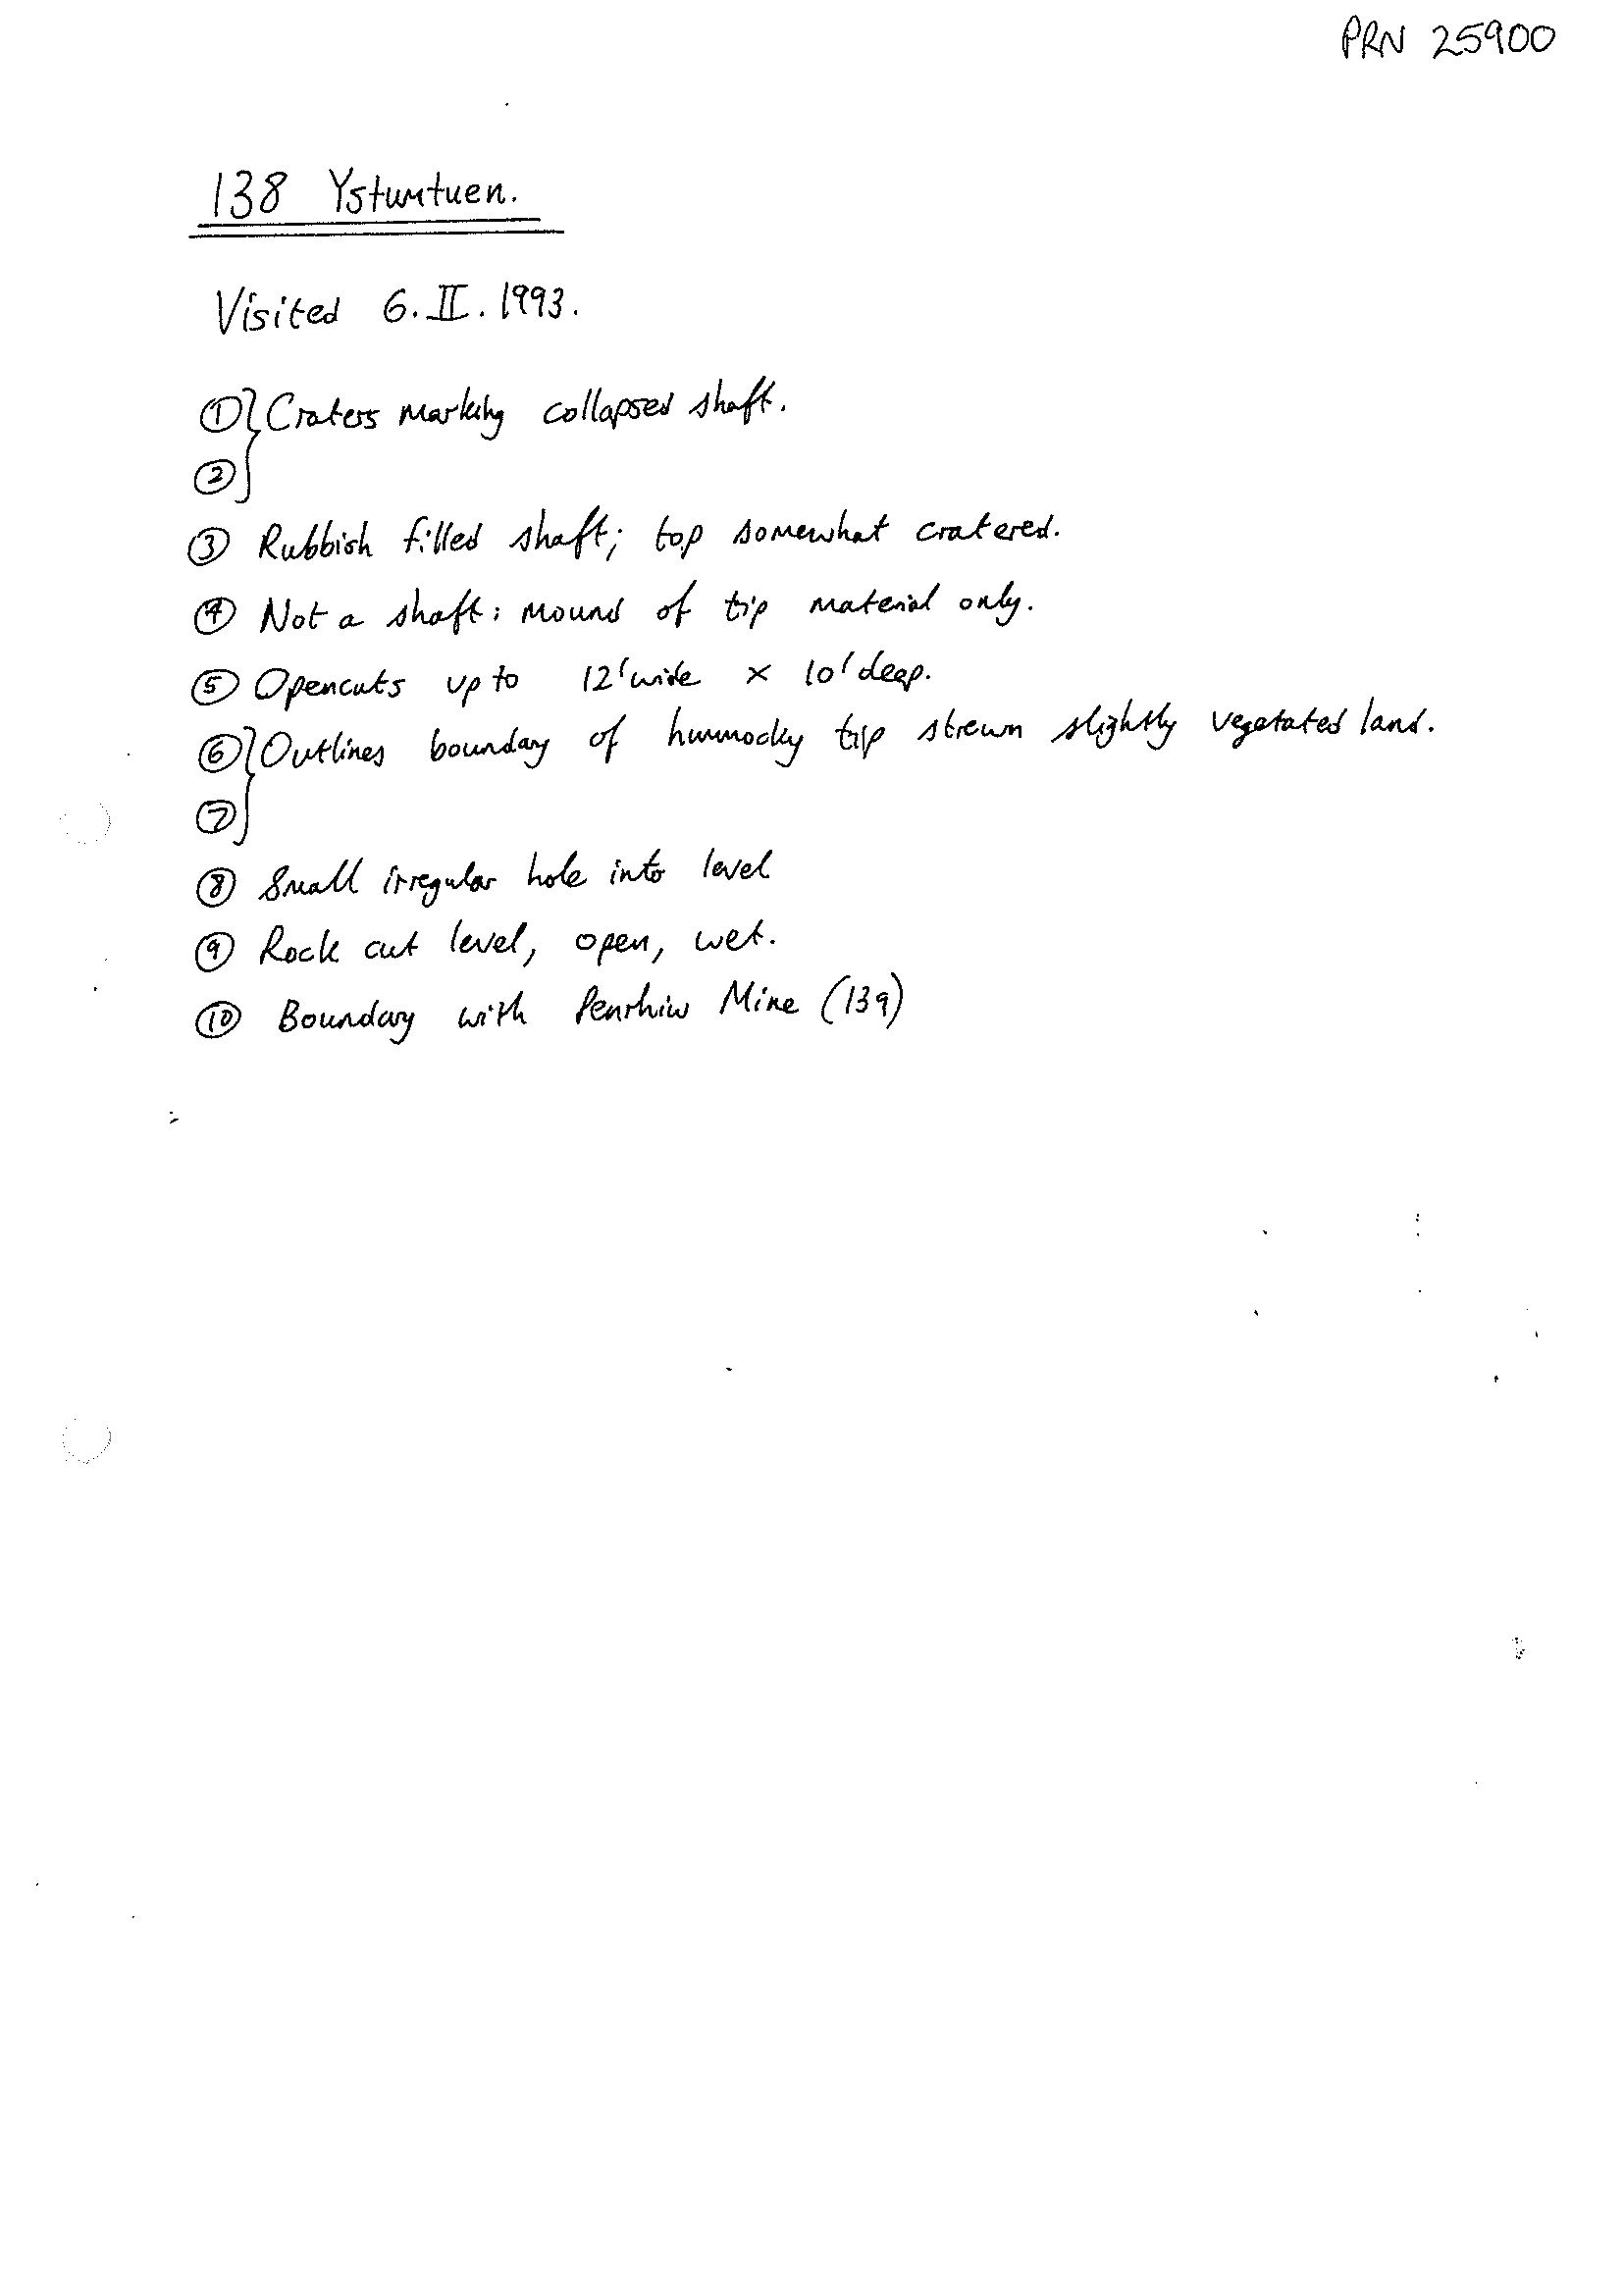 PRN 25900
138 Ystumtuen.
Visited 6.II.1993.
① } Craters marking collapsed shaft.
② }
③ Rubbish filled shaft; top somewhat cratered.
④ Not a shaft: mound of tip material only.
⑤ Opencuts up to 12' wide x 10' deep.
⑥ } Outlines boundary of hummocky tip strewn slightly vegetated land.
⑦ }
⑧ Small irregular hole into level
⑨ Rock cut level, open, wet.
⑩ Boundary with Penrhiw Mine (139)